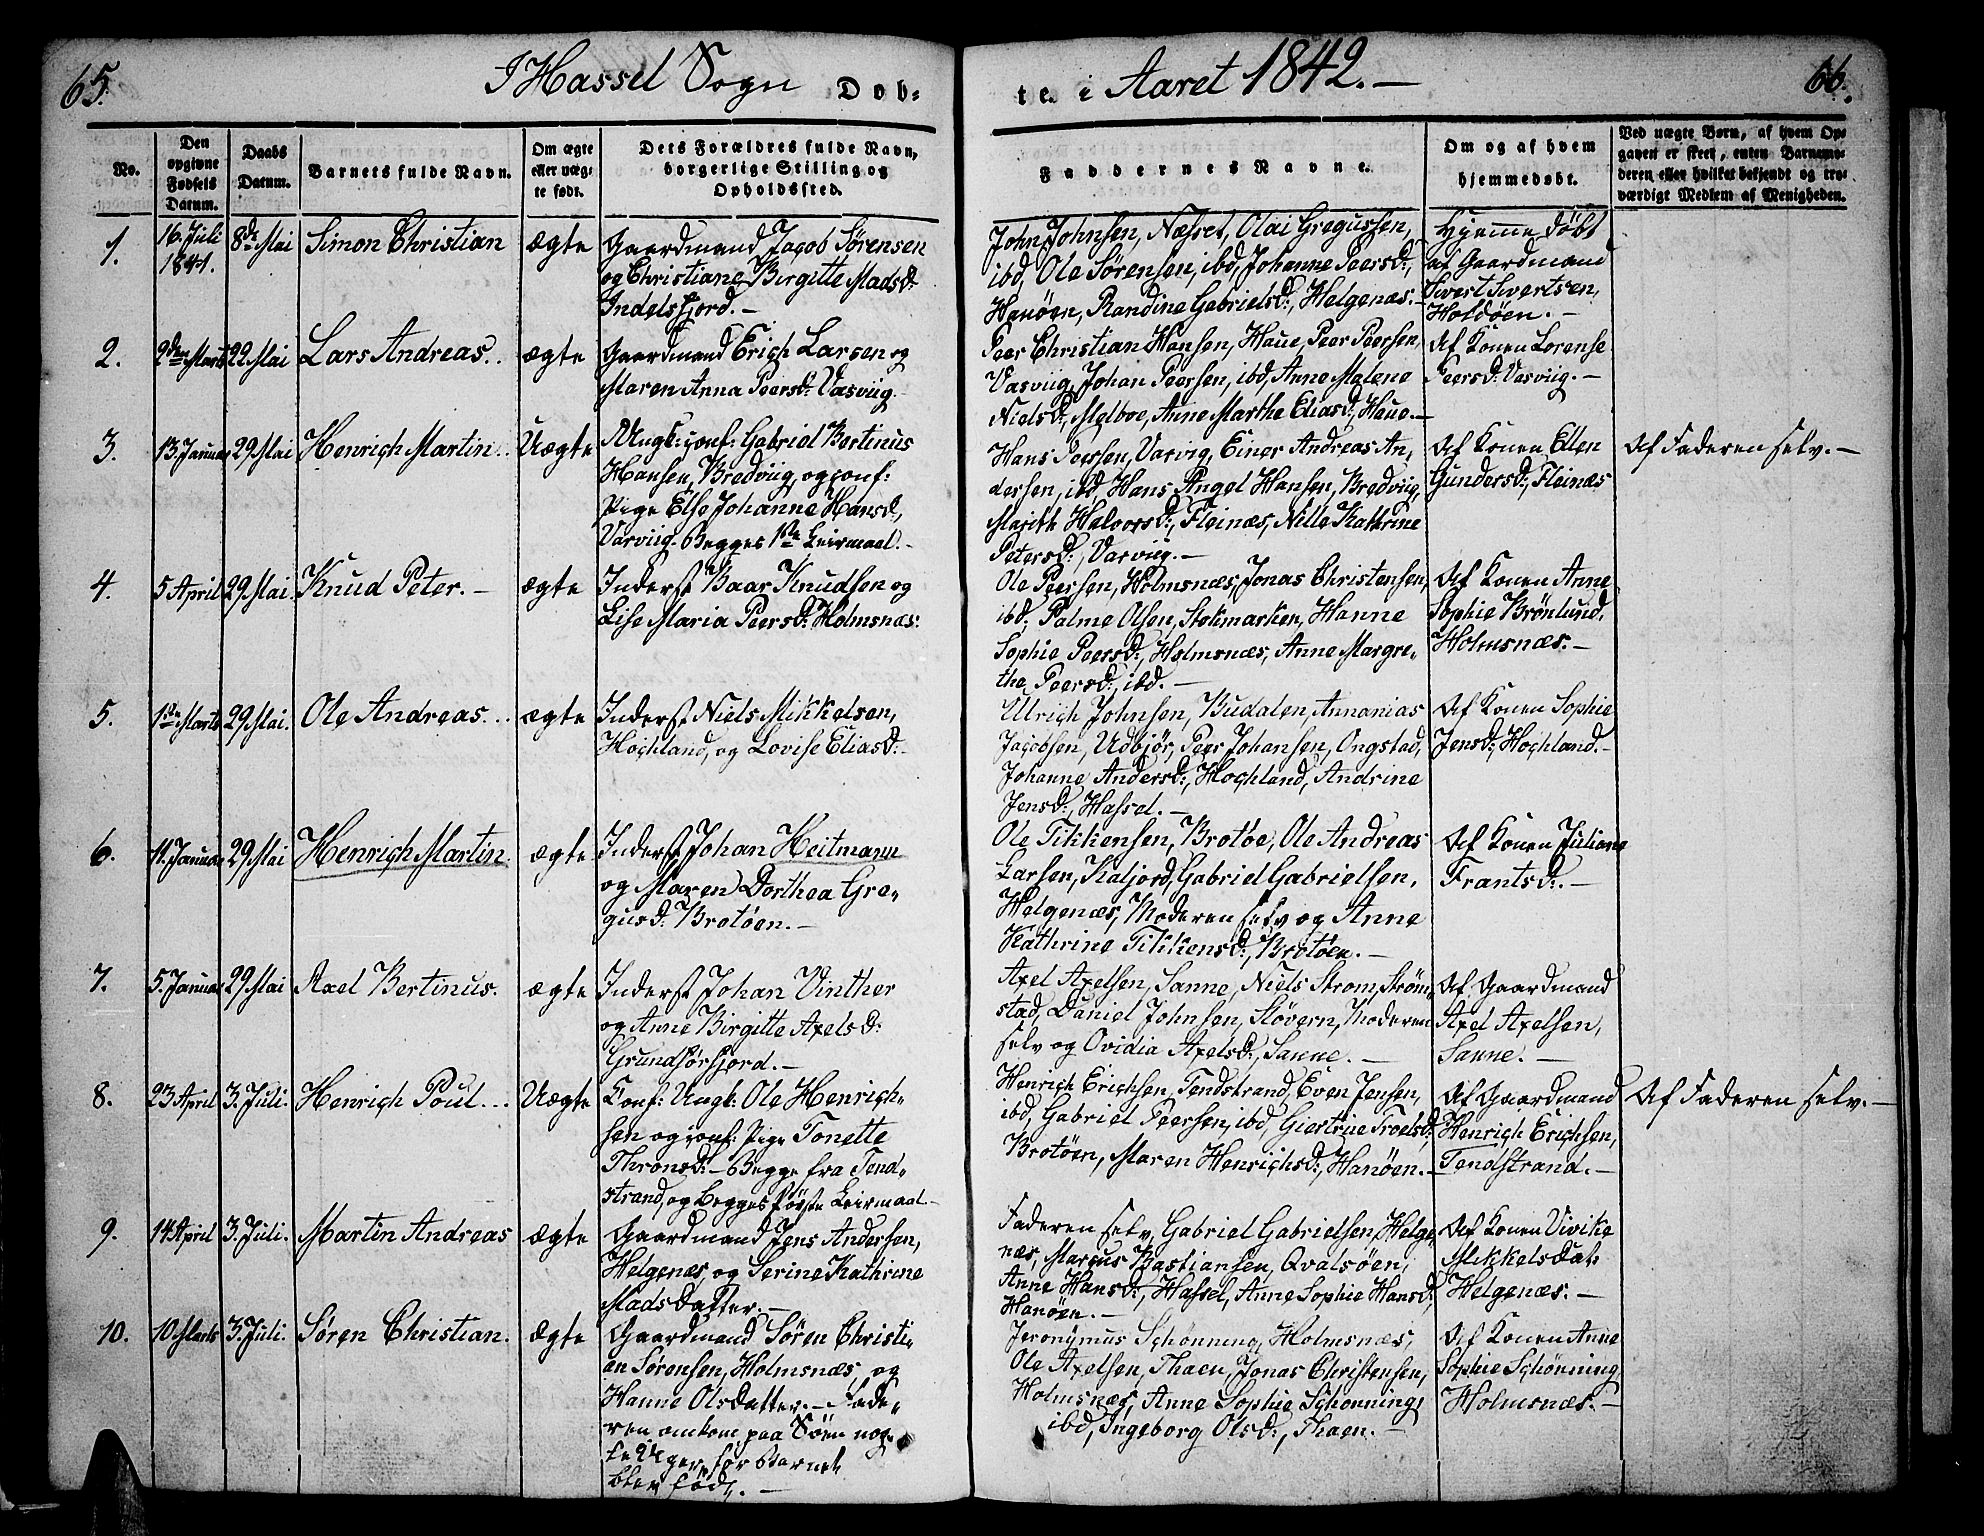 65. I Hassel Sogn Døb-
te. i Aaret 1842.— 66.
No.
Den opgivne Fødsels Datum.
Daabs Datum.
Barnets fulde Navn.
Om ægte eller uæg-te født.
Dets Forældres fulde Navn, borgerlige Stilling og Opholdssted.
Faddernes Navne.
Om og af hvem hjemmedøbt.
Ved uægte Børn, af hvem Op-gaven er skeet, enten Barnemo-deren eller hvilket bekjendt og tro-værdigt Medlem af Menigheden.
1. 16. Juli 1841. 8de Mai Simon Christian ægte
Gaardmand Jacob Sörensen
og Christiane Birgitte Madsd:
Indelsfjord.—
John Johnsen, Næsset, Olai Gregussen,
ibd, Ole Sörensen, ibd, Johanne Peersd:,
Hanöen, Randine Gabrielsd:, Helgenæs.—
Hjemme døbt
af Gaardmand
Sivert Sivertsen,
Holdöen.—
2. 2den Marts 22 Mai Lars Andreas.. ægte
Gaardmand Erich Larsen og
Maren Anna Peersd: Vasviig.
Peer Christian Hansen, Haue, Peer Peersen,
Vasviig, Johan Peersen, ibd, Anne Malene
Nielsd:, Melboe, Anne Marthe Eliasd:, Haue.—
Af Konen Lorense
Peersd: Vasviig.—
3. 13. Januar 29 Mai Henrich Martin.. Uægte
Ungk: conf: Gabriel Bertinus
Hansen, Bredviig, og conf:
Pige Else Johanne Hansd:,
Varviig. Begges 1ste Leirmaal.—
Hans Peersen, Varvig, Einer Andreas An,
dersen, ibd, Hans Angel Hansen, Bredviig,
Marith Halvorsd:, Fleinæs, Nille Kathrine
Petersd:, Varviig.—
Af Konen Ellen
Gundersd:, Fleinæs
Af Faderen selv.—
4. 5 April 29. Mai. Knud Peter.— ægte
Inderst Baar Knudsen og
Lise Maria Peersd: Holmsnæs:
Ole Peersen, Holmsnæs, Jonas Christensen,
ibd, Palme Olsen, Stokmarken, Hanne
Sophie Peersd:, Holmsnæs, Anne Margre-
the Peersd:, ibd.—
Af Konen Anne
Sophie Brönlund,
Holmsnæs.—
5. 1ste Marts 29 Mai. Ole Andreas... ægte
Inderst Niels Mikkelsen,
Hochland, og Lovise Eliasd:—
Ulrich Johnsen, Budalen, Annanias
Jacobsen, Udbjör, Peer Johansen, Ongstad,
Johanne Andersd:, Hochland, Andrine
Jensd:, Hassel.—
Af Konen Sophie
Jensd:, Hochland.—
6. 11. Januar 29 Mai Henrich Martin. ægte
Inderst Johan Heitmann
og Maren Dorthea Gre,
gusd: Brotöen.—
Ole Tikkensen, Brotöe, Ole Andreas
Larsen, Kaljord, Gabriel Gabrielsen,
Helgenæs, Moderen selv og Anne
Kathrine Tikkensd:, Brotöen.—
Af Konen Juliane
Frantsd:.—
7. 5. Januar 29 Mai Axel Bertinus. ægte
Inderst Johan Vinther
og Anne Birgitte Axelsd:
Grundförfjord.—
Axel Axelsen, Sanne, Niels Strom, Ström-
stad, Daniel Johnsen, Slövern, Moderen
selv og Ovidia Axelsd:, Sanne.—
Af Gaardmand
Axel Axelsen,
Sanne.—
8. 23 April 3. Juli. Henrich Poul... Uægte
Conf: Ungk: Ole Henrich-
sen og conf: Pige Tonette
Thronsd:— Begge fra Tend-
strand, og begges første Leirmaal.—
Henrich Erichsen, Tendstrand, Even Jensen,
ibd, Gabriel Peersen, ibd, Giertrue Troelsd:
Brotöen, Maren Henrichsd:, Hanöen.—
Af Gaardmand
Henrich Erichsen,
Tendstrand.—
Af Faderen selv.—
9. 14 April 3. Juli. Martin Andreas ægte
Gaardmand Jens Andersen,
Helgenæs, og Serine Kathrine
Mads Datter.—
Faderen selv, Gabriel Gabrielsen, Helge-
næs, Marcus Bastiansen, Qvalsöen,
Anne Hansd:, Hassel, Anne Sophie Hansd:,
Hanöen.—
Af Konen Vivike
Mikkelsdat:
Helgenæs.—
10. 10 Marts 3. Juli. Sören Christian. ægte
Gaardmand Sören Christi-
an Sörensen, Holmsnæs, og
Hanne Olsdatter.— Fade-
ren omkom paa Söen nog-
le Uger, før Barnet
blev fød,.—
Jeronymus Schönning, Holmsnæs,
Ole Axelsen, Thaen, Jonas Christensen,
Holmsnæs, Anne Sophie Schönning,
ibd, Ingeborg Olsd:, Thaen.—
Af Konen Anne
Sophie Schönning,
Holmsnæs.—